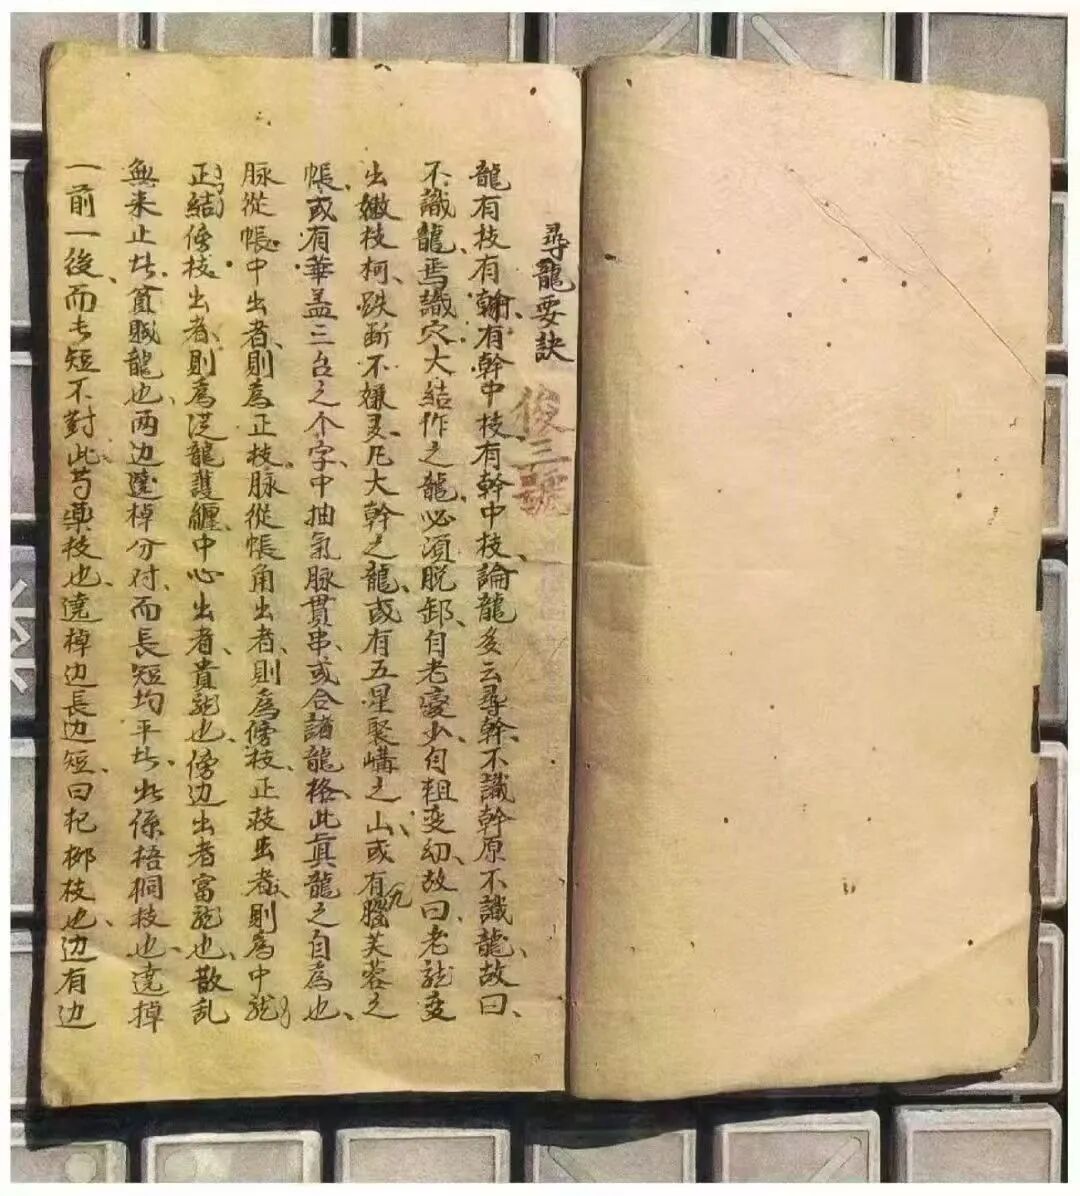 尋龍要訣
俊三號
龍有枝有幹、有幹中枝、有幹中枝、論龍多云尋幹、不識幹原不識龍、故曰、
不識龍、焉識穴、大結作之龍、必須脫卸、自老变少、自粗变幼、故曰、老龍变
出嫩枝柯、跌断不嫌多、凡大幹之龍、或有五星聚構之山、或有九腦芙蓉之
帳、或有華盖三台之个字、中抽氣脉貫串、或合諸龍格、此真龍之自為也、
脉從帳中出者、則為正枝、脉從帳角出者、則為傍枝、正枝出者、則為中龍
正結、傍枝出者、則為従龍護纏、中心出者、貴龍也、傍边出者富龍也、散乱
無来止者、貧賊龍也、两边遶棹分对、而長短均平者、此係梧桐枝也、遶棹
一前一後、而長短不對、此芍藥枝也、遶棹边長边短、曰杞栁枝也、边有边